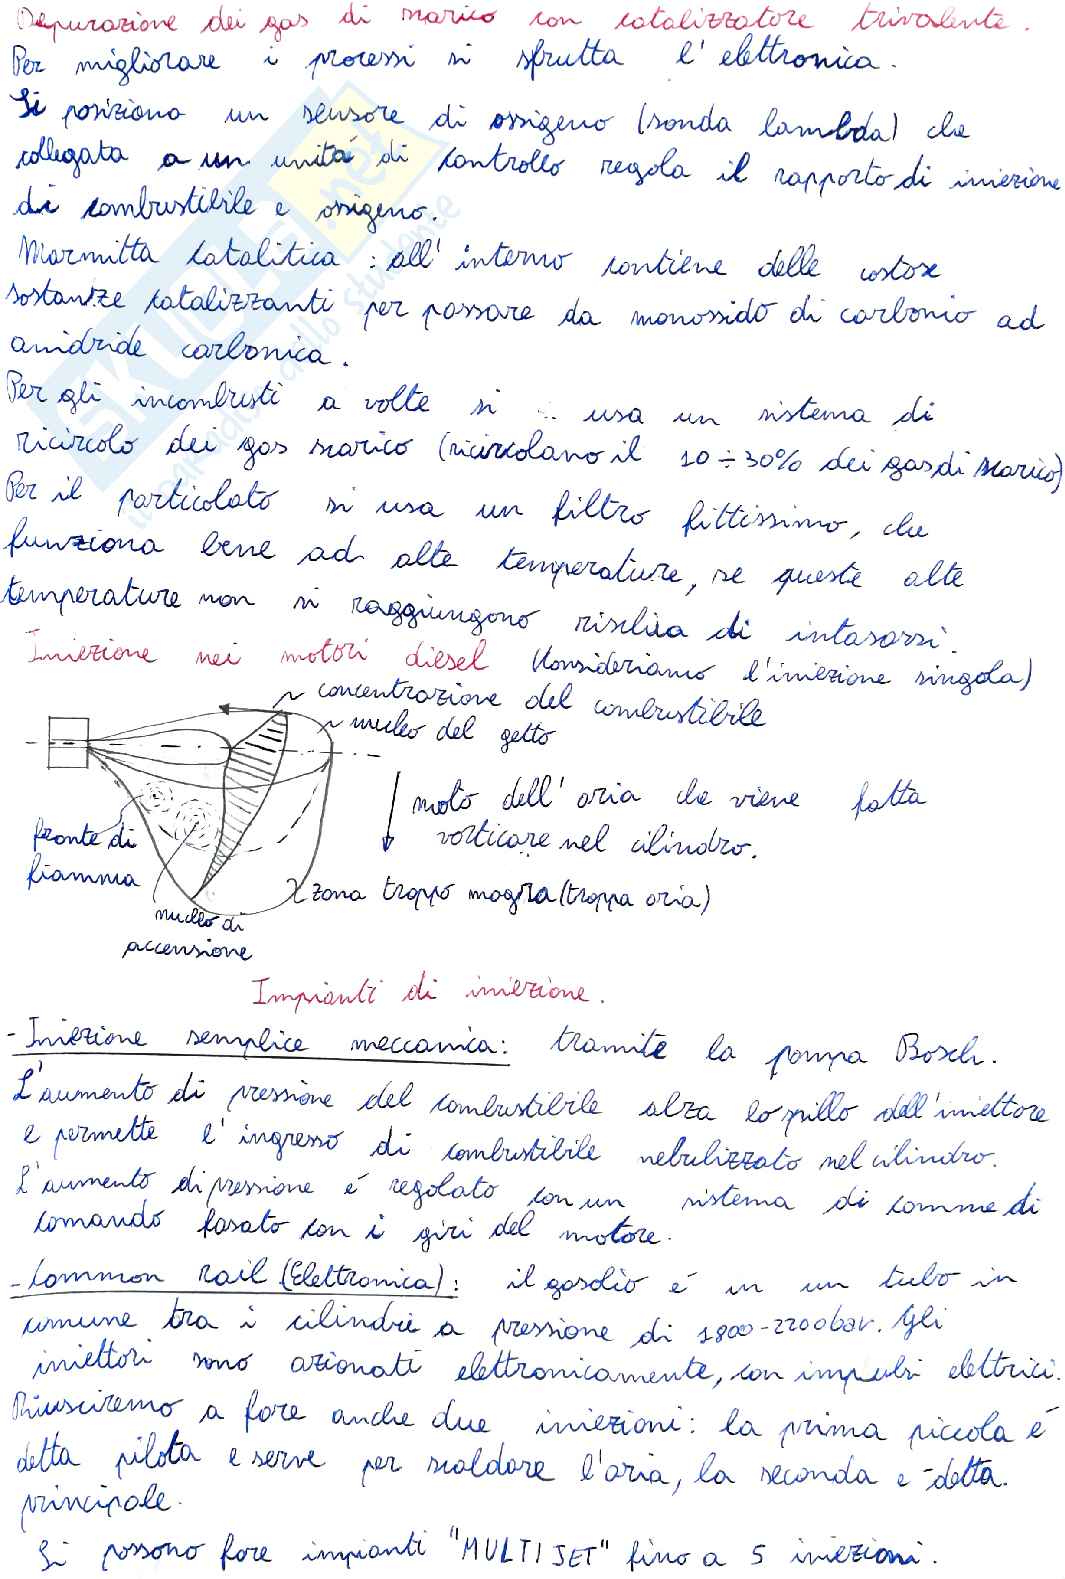 Depurazione dei gas di scarico con catalizzatore trivalente.
Per migliorare i processi si sfrutta l'elettronica.
Si posiziona un sensore di ossigeno (sonda lambda) che
collegata a un unità di controllo regola il rapporto di iniezione
di combustibile e ossigeno.
Marmitta catalitica: all'interno contiene delle costose
sostanze catalizzanti per passare da monossido di carbonio ad
anidride carbonica.
Per gli incombusti a volte si usa un sistema di
ricircolo dei gas scarico (ricircolano il 10÷30% dei gas di scarico)
Per il particolato si usa un filtro fittissimo, che
funziona bene ad alte temperature, se queste alte
temperature non si raggiungono rischia di intasarsi.
Iniezione nei motori diesel (consideriamo l'iniezione singola)
concentrazione del combustibile
nucleo del getto
moto dell'aria che viene fatta
vorticare nel cilindro.
fronte di
fiamma
zona troppo magra (troppa aria)
nucleo di
accensione
Impianti di iniezione.
- Iniezione semplice meccanica: tramite la pompa Bosch.
L'aumento di pressione del combustibile alza lo spillo dell'iniettore
e permette l'ingresso di combustibile nebulizzato nel cilindro.
L'aumento di pressione é regolato con un sistema di camme di
comando fasato con i giri del motore.
- Common rail (Elettronica): il gasolio é in un tubo in
comune tra i cilindri a pressione di 1800-2200bar. Gli
iniettori sono azionati elettronicamente, con impulsi elettrici.
Riusciremo a fare anche due iniezioni: la prima piccola é
detta pilota e serve per scaldare l'aria, la seconda e detta
principale.
Si possono fare impianti "MULTIJET" fino a 5 iniezioni.
SKUOLA.net
il paradiso dello studente